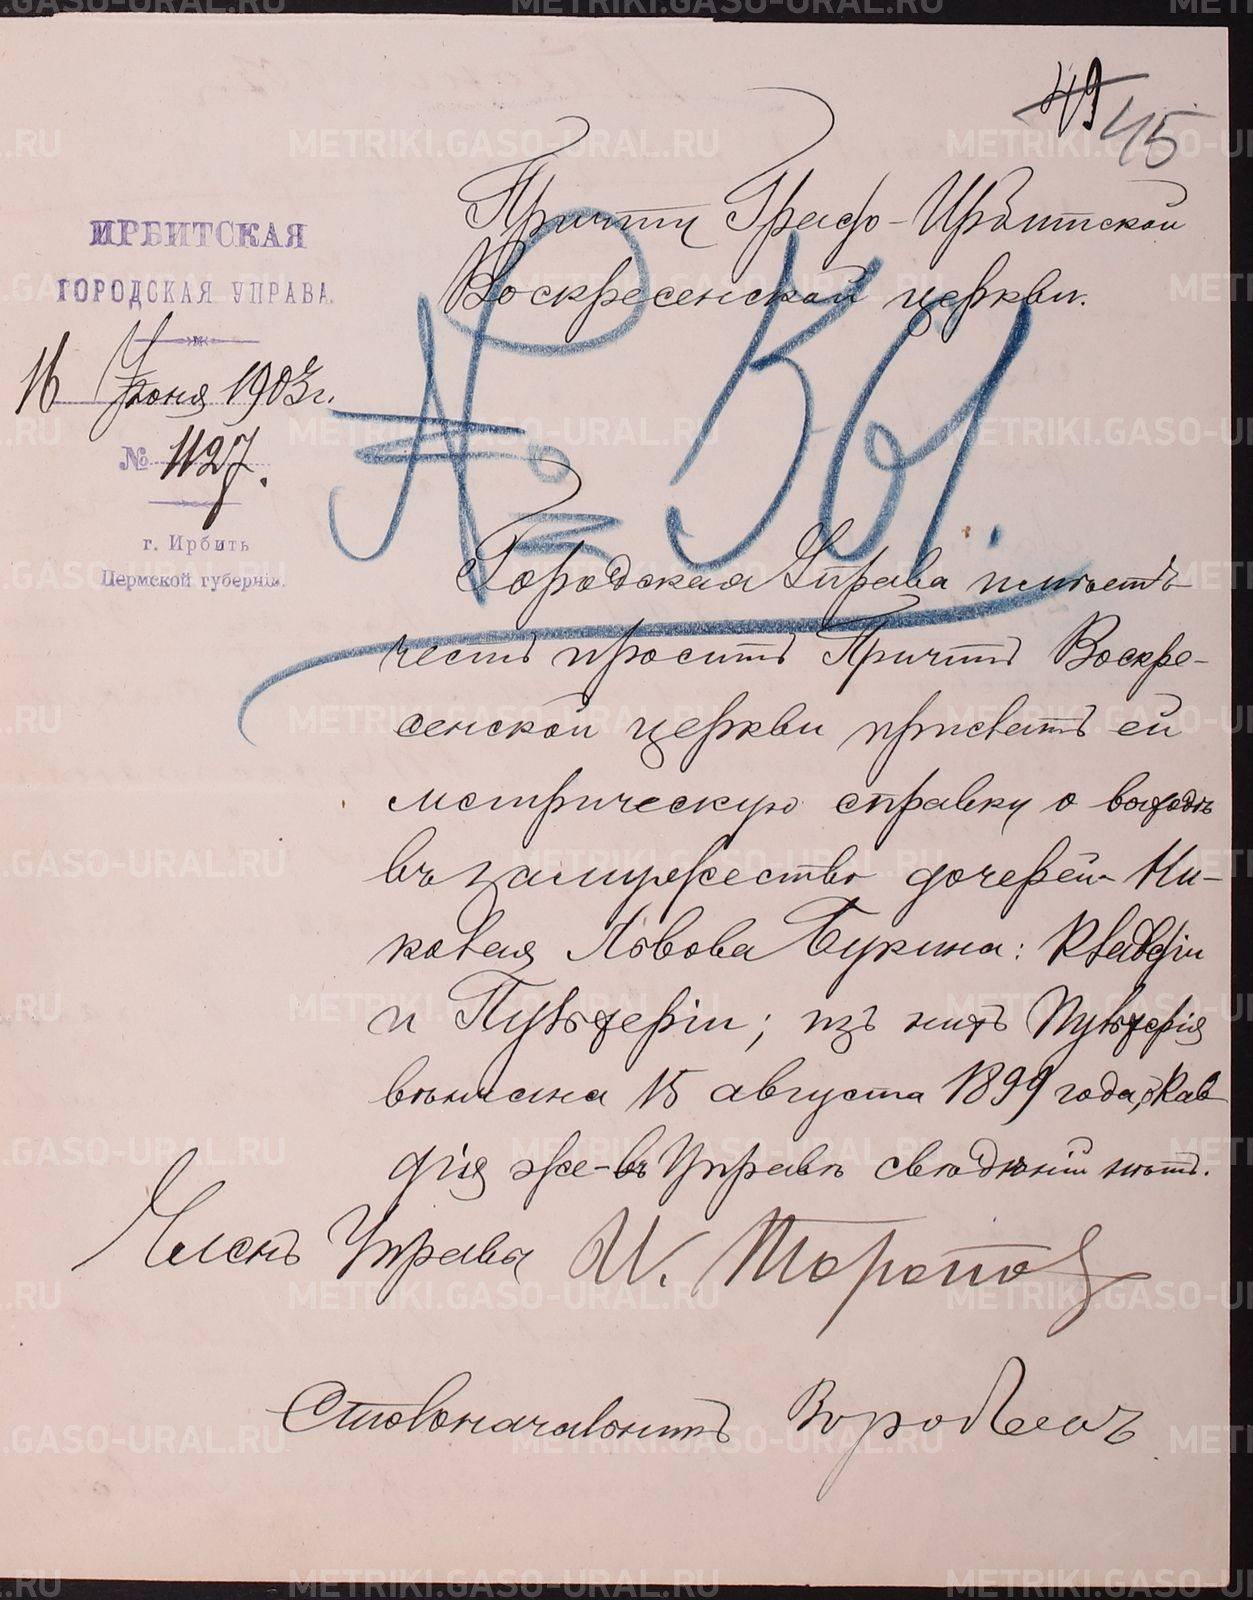 49 45
ИРБИТСКАЯ
ГОРОДСКАЯ УПРАВА.
16 Іюня 1903 г.
№ 1127.
г. Ирбить
Пермской губерніи.
Причту Градо-Ирбитской
Воскресенской церкви.
№ 561.
Городская Управа имѣетъ
честь просить Причтъ Воскре-
сенской церкви прислать ей
метрическую справку о выходѣ
въ замужество дочерей Ни-
колая Львова Букина: Клавдіи
и Пульхеріи; изъ нихъ Пульхерія
вѣнчана 15 августа 1899 года, о Клав
діи же въ Управѣ свѣдѣній нѣтъ.
Членъ Управы И. Торопов
Столоначальникъ Воробьевъ
METRIKI.GASO-URAL.RU